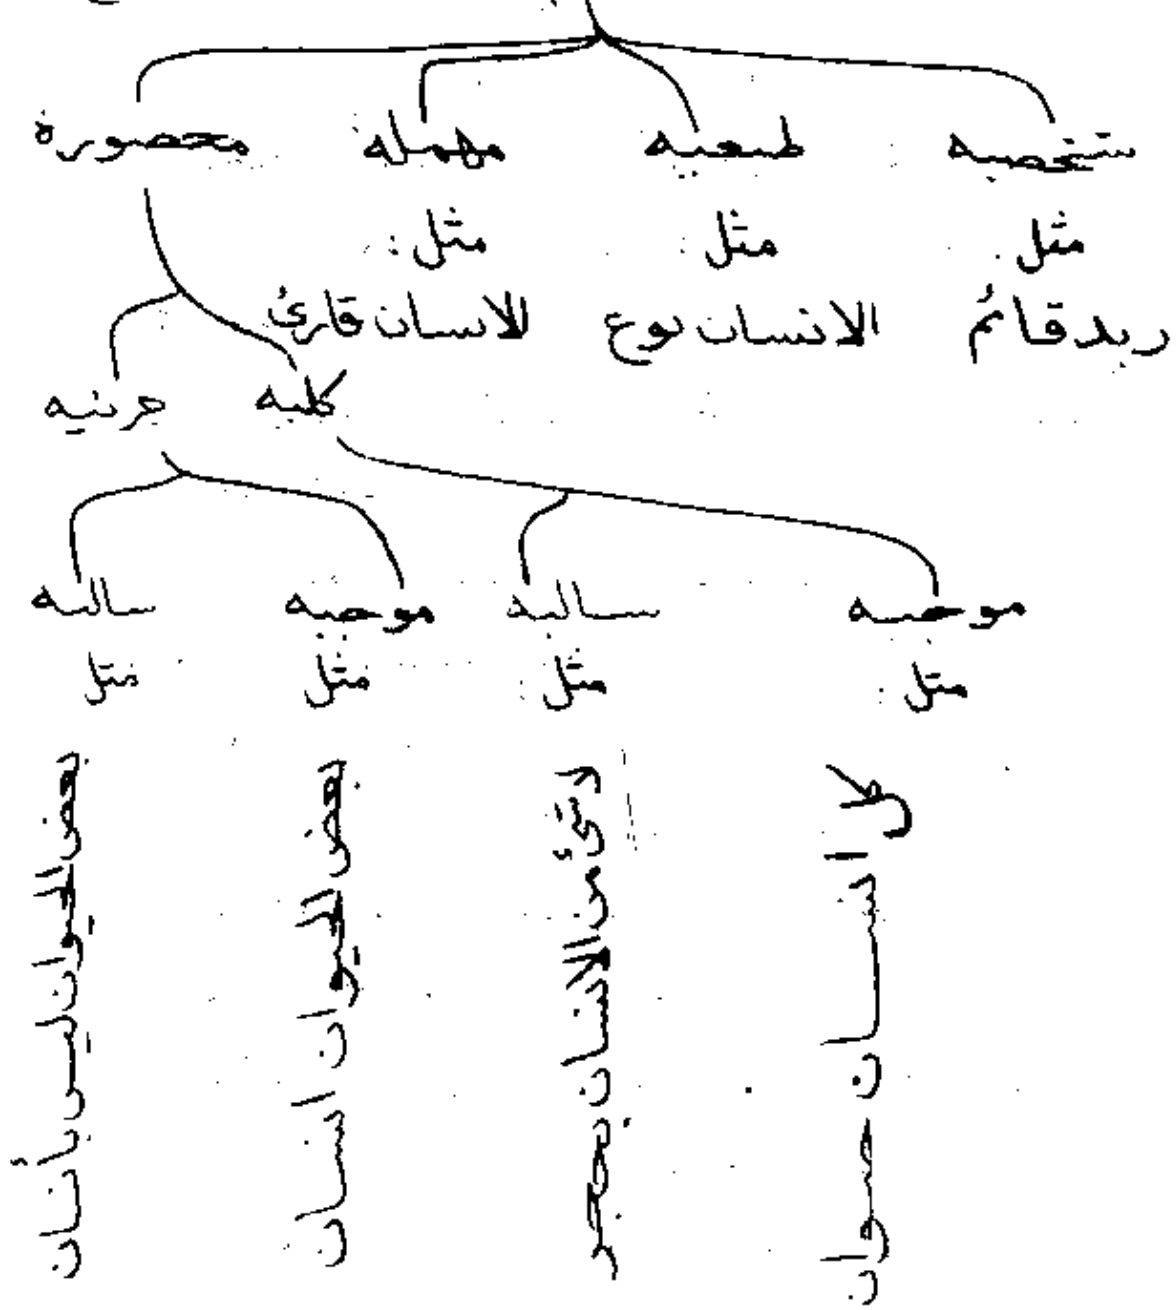 شخصيه طبعيه مهمله محصورة
مثل : مثل : مثل :
زيد قائم الانسان نوع الانسان قارئ
كليه جزئيه
موجبه سالبه موجبه سالبه
مثل : مثل : مثل مثل
كل انسان حيوان
لا شئ من الانسان بحجر
بعض الحيوان انسان
بعض الحيوان ليس بأنسان